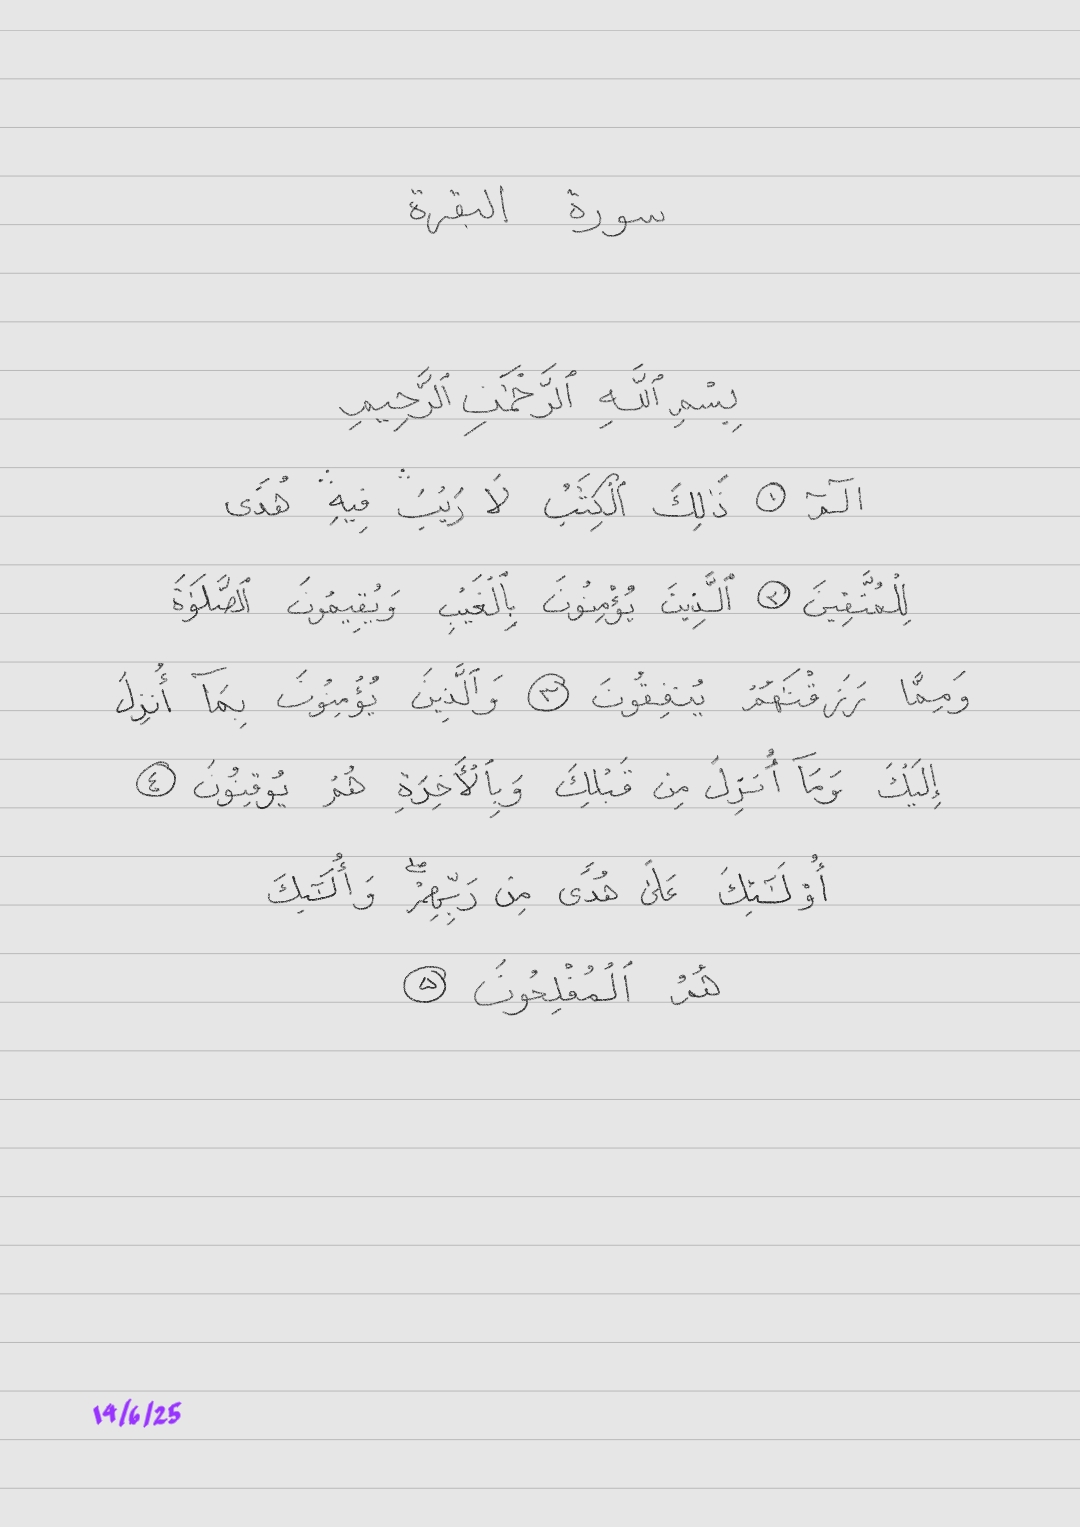 سورة البقرة
بِسْمِ ٱللَّهِ ٱلرَّحْمَٰنِ ٱلرَّحِيمِ
الٓمٓ ١ ذَٰلِكَ ٱلْكِتَٰبُ لَا رَيْبَ ۛ فِيهِ ۛ هُدًى
لِلْمُتَّقِينَ ٢ ٱلَّذِينَ يُؤْمِنُونَ بِٱلْغَيْبِ وَيُقِيمُونَ ٱلصَّلَوٰةَ
وَمِمَّا رَزَقْنَٰهُمْ يُنفِقُونَ ٣ وَٱلَّذِينَ يُؤْمِنُونَ بِمَآ أُنزِلَ
إِلَيْكَ وَمَآ أُنزِلَ مِن قَبْلِكَ وَبِٱلْأَخِرَةِ هُمْ يُوقِنُونَ ٤
أُوْلَٰٓئِكَ عَلَىٰ هُدًى مِن رَبِّهِمْ ۖ وَأُلَٰٓئِكَ
هُمُ ٱلْمُفْلِحُونَ ٥
14/6/25